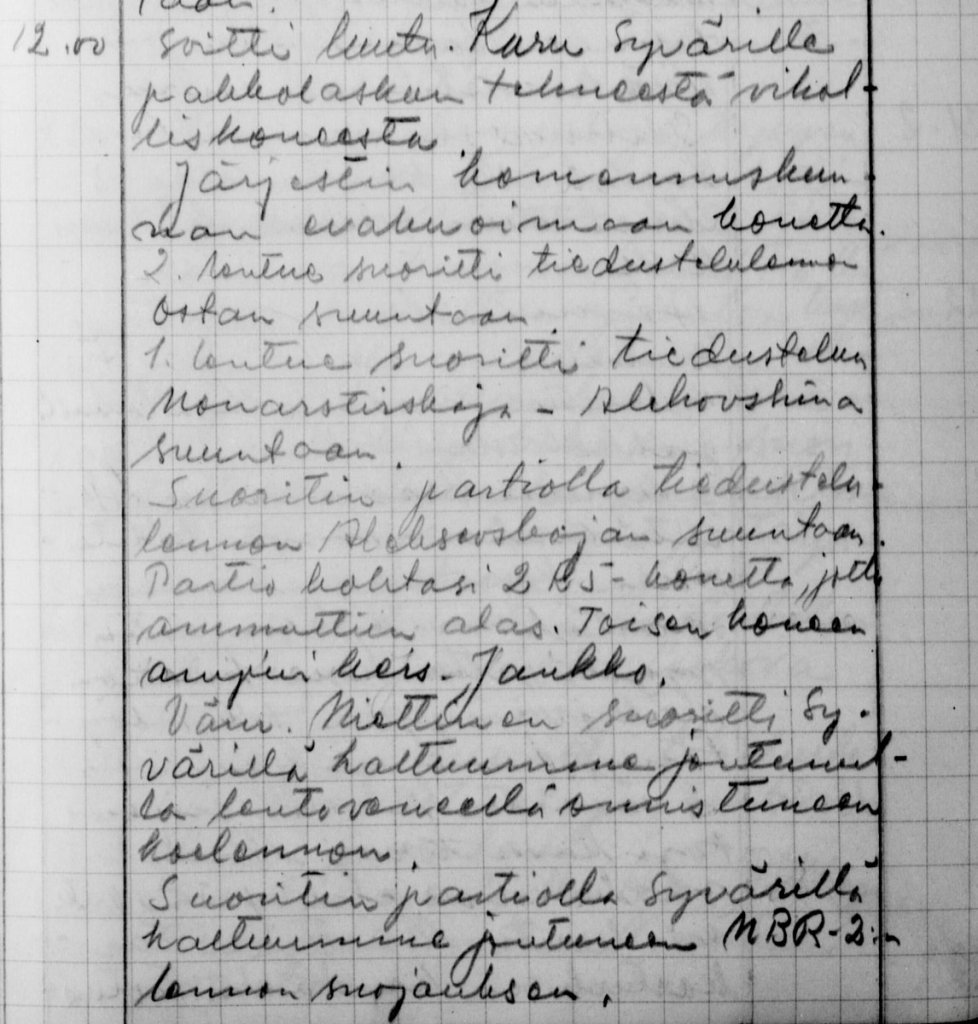 12.00 Soitti luutn. Karu Syvärille
pakkolaskun tehneestä vihol-
liskoneesta.
Järjestin komennuskun-
nan evakuoimaan konetta.
2. lentue suoritti tiedustelulennon
Ostan suuntaan.
1. lentue suoritti tiedustelun
Monastirskaja - Alehovshina
suuntaan.
Suoritin partiolla tiedustelu-
lennon Aleksovskajan suuntaan.
Partio kohtasi 2 R5-konetta, jotka
ammuttiin alas. Toisen koneen
ampui kers. Jankko.
Vänr. Miettinen suoritti Sy-
värillä haltuumme joutunul-
la lentoveneellä onnistuneen
koelennon.
Suoritin partiolla Syvärillä
haltuumme joutuneen MBR-2:n
lennon suojauksen.